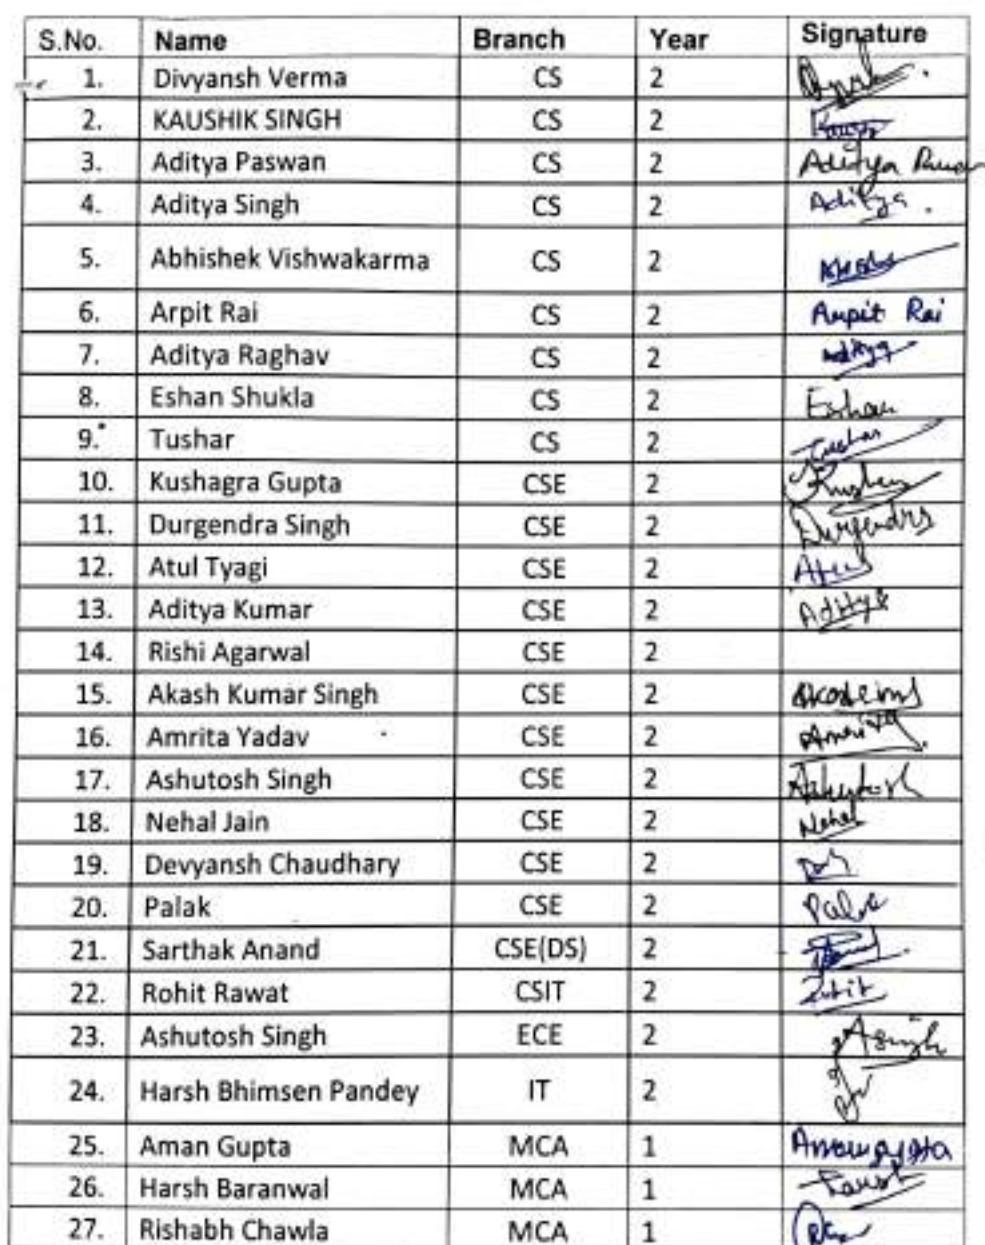 S.No. Name Branch Year Signature
1. Divyansh Verma CS 2
2. KAUSHIK SINGH CS 2
3. Aditya Paswan CS 2 Aditya
4. Aditya Singh CS 2 Aditya.
5. Abhishek Vishwakarma CS 2
6. Arpit Rai CS 2 Arpit Rai
7. Aditya Raghav CS 2 Aditya
8. Eshan Shukla CS 2 Eshan
9. Tushar CS 2 Tushar
10. Kushagra Gupta CSE 2
11. Durgendra Singh CSE 2 Durgendra
12. Atul Tyagi CSE 2 Atul
13. Aditya Kumar CSE 2 Aditya
14. Rishi Agarwal CSE 2
15. Akash Kumar Singh CSE 2
16. Amrita Yadav CSE 2 Amrita
17. Ashutosh Singh CSE 2 Ashutosh
18. Nehal Jain CSE 2 Nehal
19. Devyansh Chaudhary CSE 2
20. Palak CSE 2 Palak
21. Sarthak Anand CSE(DS) 2
22. Rohit Rawat CSIT 2
23. Ashutosh Singh ECE 2 ASingh
24. Harsh Bhimsen Pandey IT 2
25. Aman Gupta MCA 1 Aman gupta
26. Harsh Baranwal MCA 1
27. Rishabh Chawla MCA 1